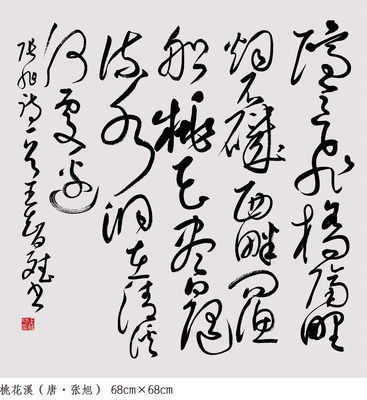 隐隐飞桥隔野
烟石矶西畔问渔
船桃花尽日随
流水洞在清溪
何处边
张旭诗一首王书
桃花溪（唐·张旭） 68cm×68cm